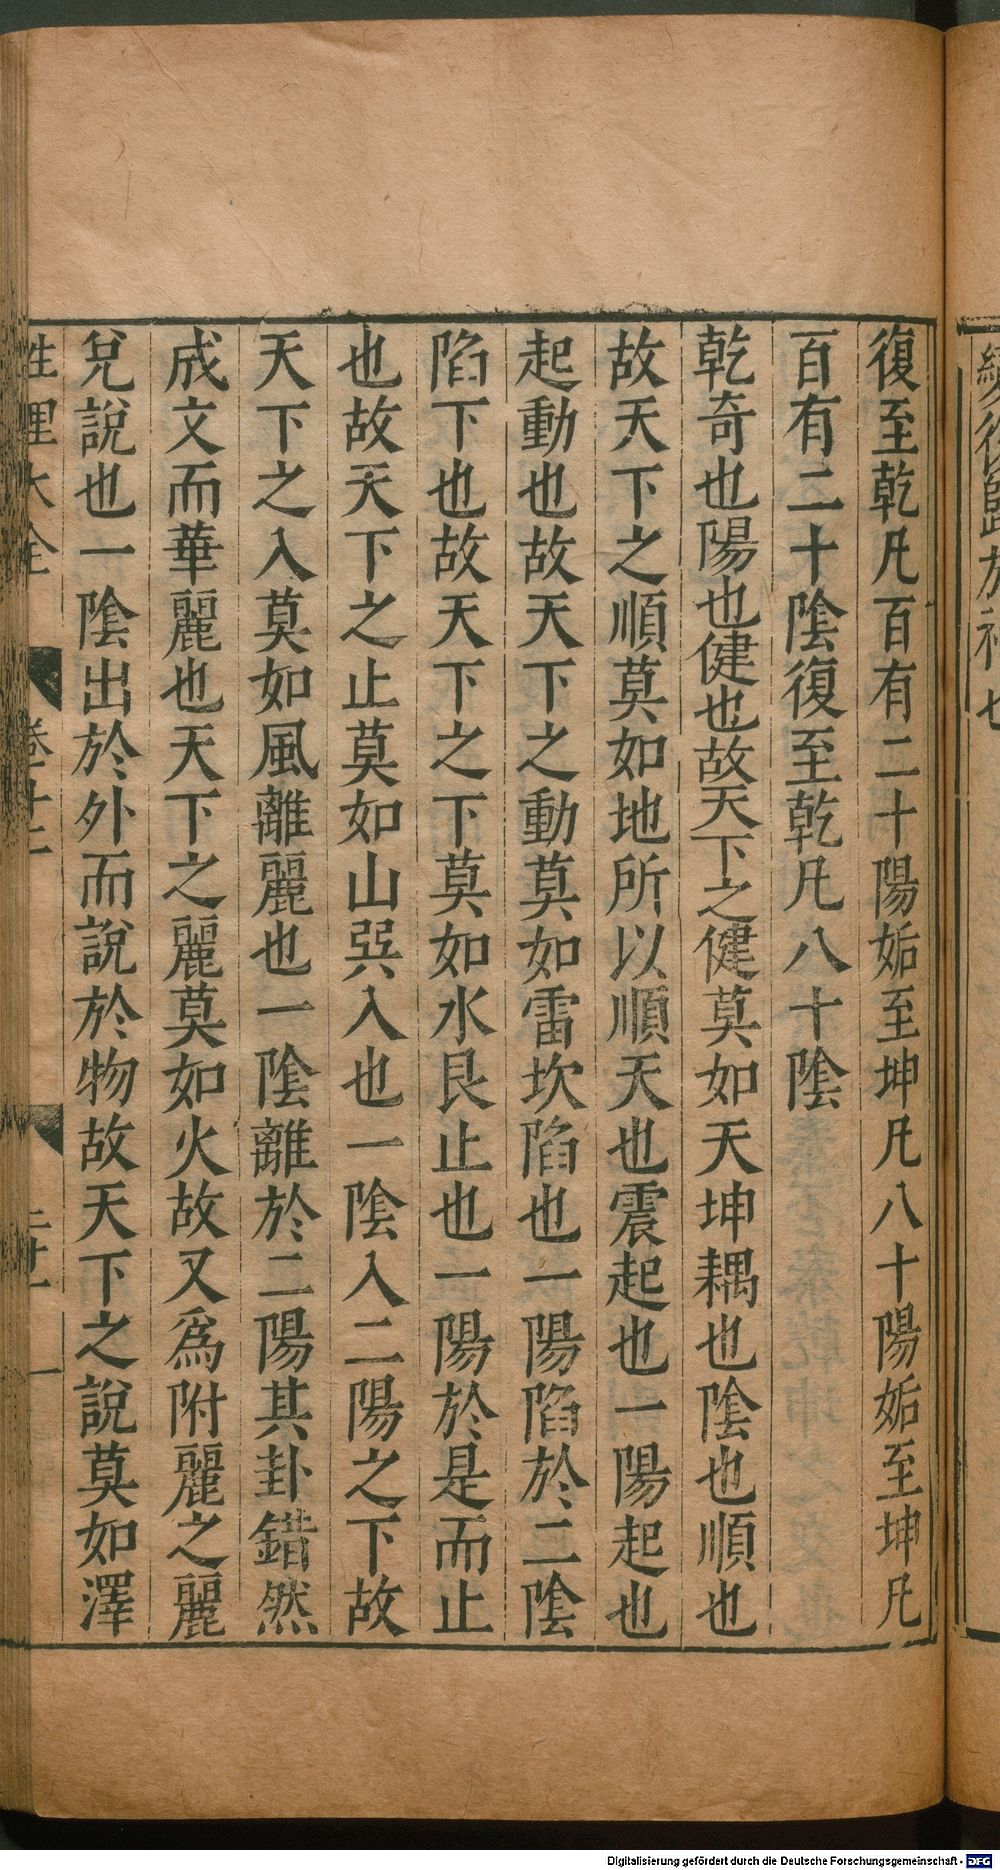 復至乾凡百有二十陽姤至坤凡八十陽姤至坤凡
百有二十陰復至乾凡八十陰
乾奇也陽也健也故天下之健莫如天坤耦也陰也順也
故天下之順莫如地所以順天也震起也一陽起也
起動也故天下之動莫如雷坎陷也一陽陷於二陰
陷下也故天下之下莫如水艮止也一陽於是而止
也故天下之止莫如山巽入也一陰入二陽之下故
天下之入莫如風離麗也一陰離於二陽其卦錯然
成文而華麗也天下之麗莫如火故又爲附麗之麗
兌說也一陰出於外而說於物故天下之說莫如澤
性理大全 卷十二
Digitalisierung gefördert durch die Deutsche Forschungsgemeinschaft - DFG